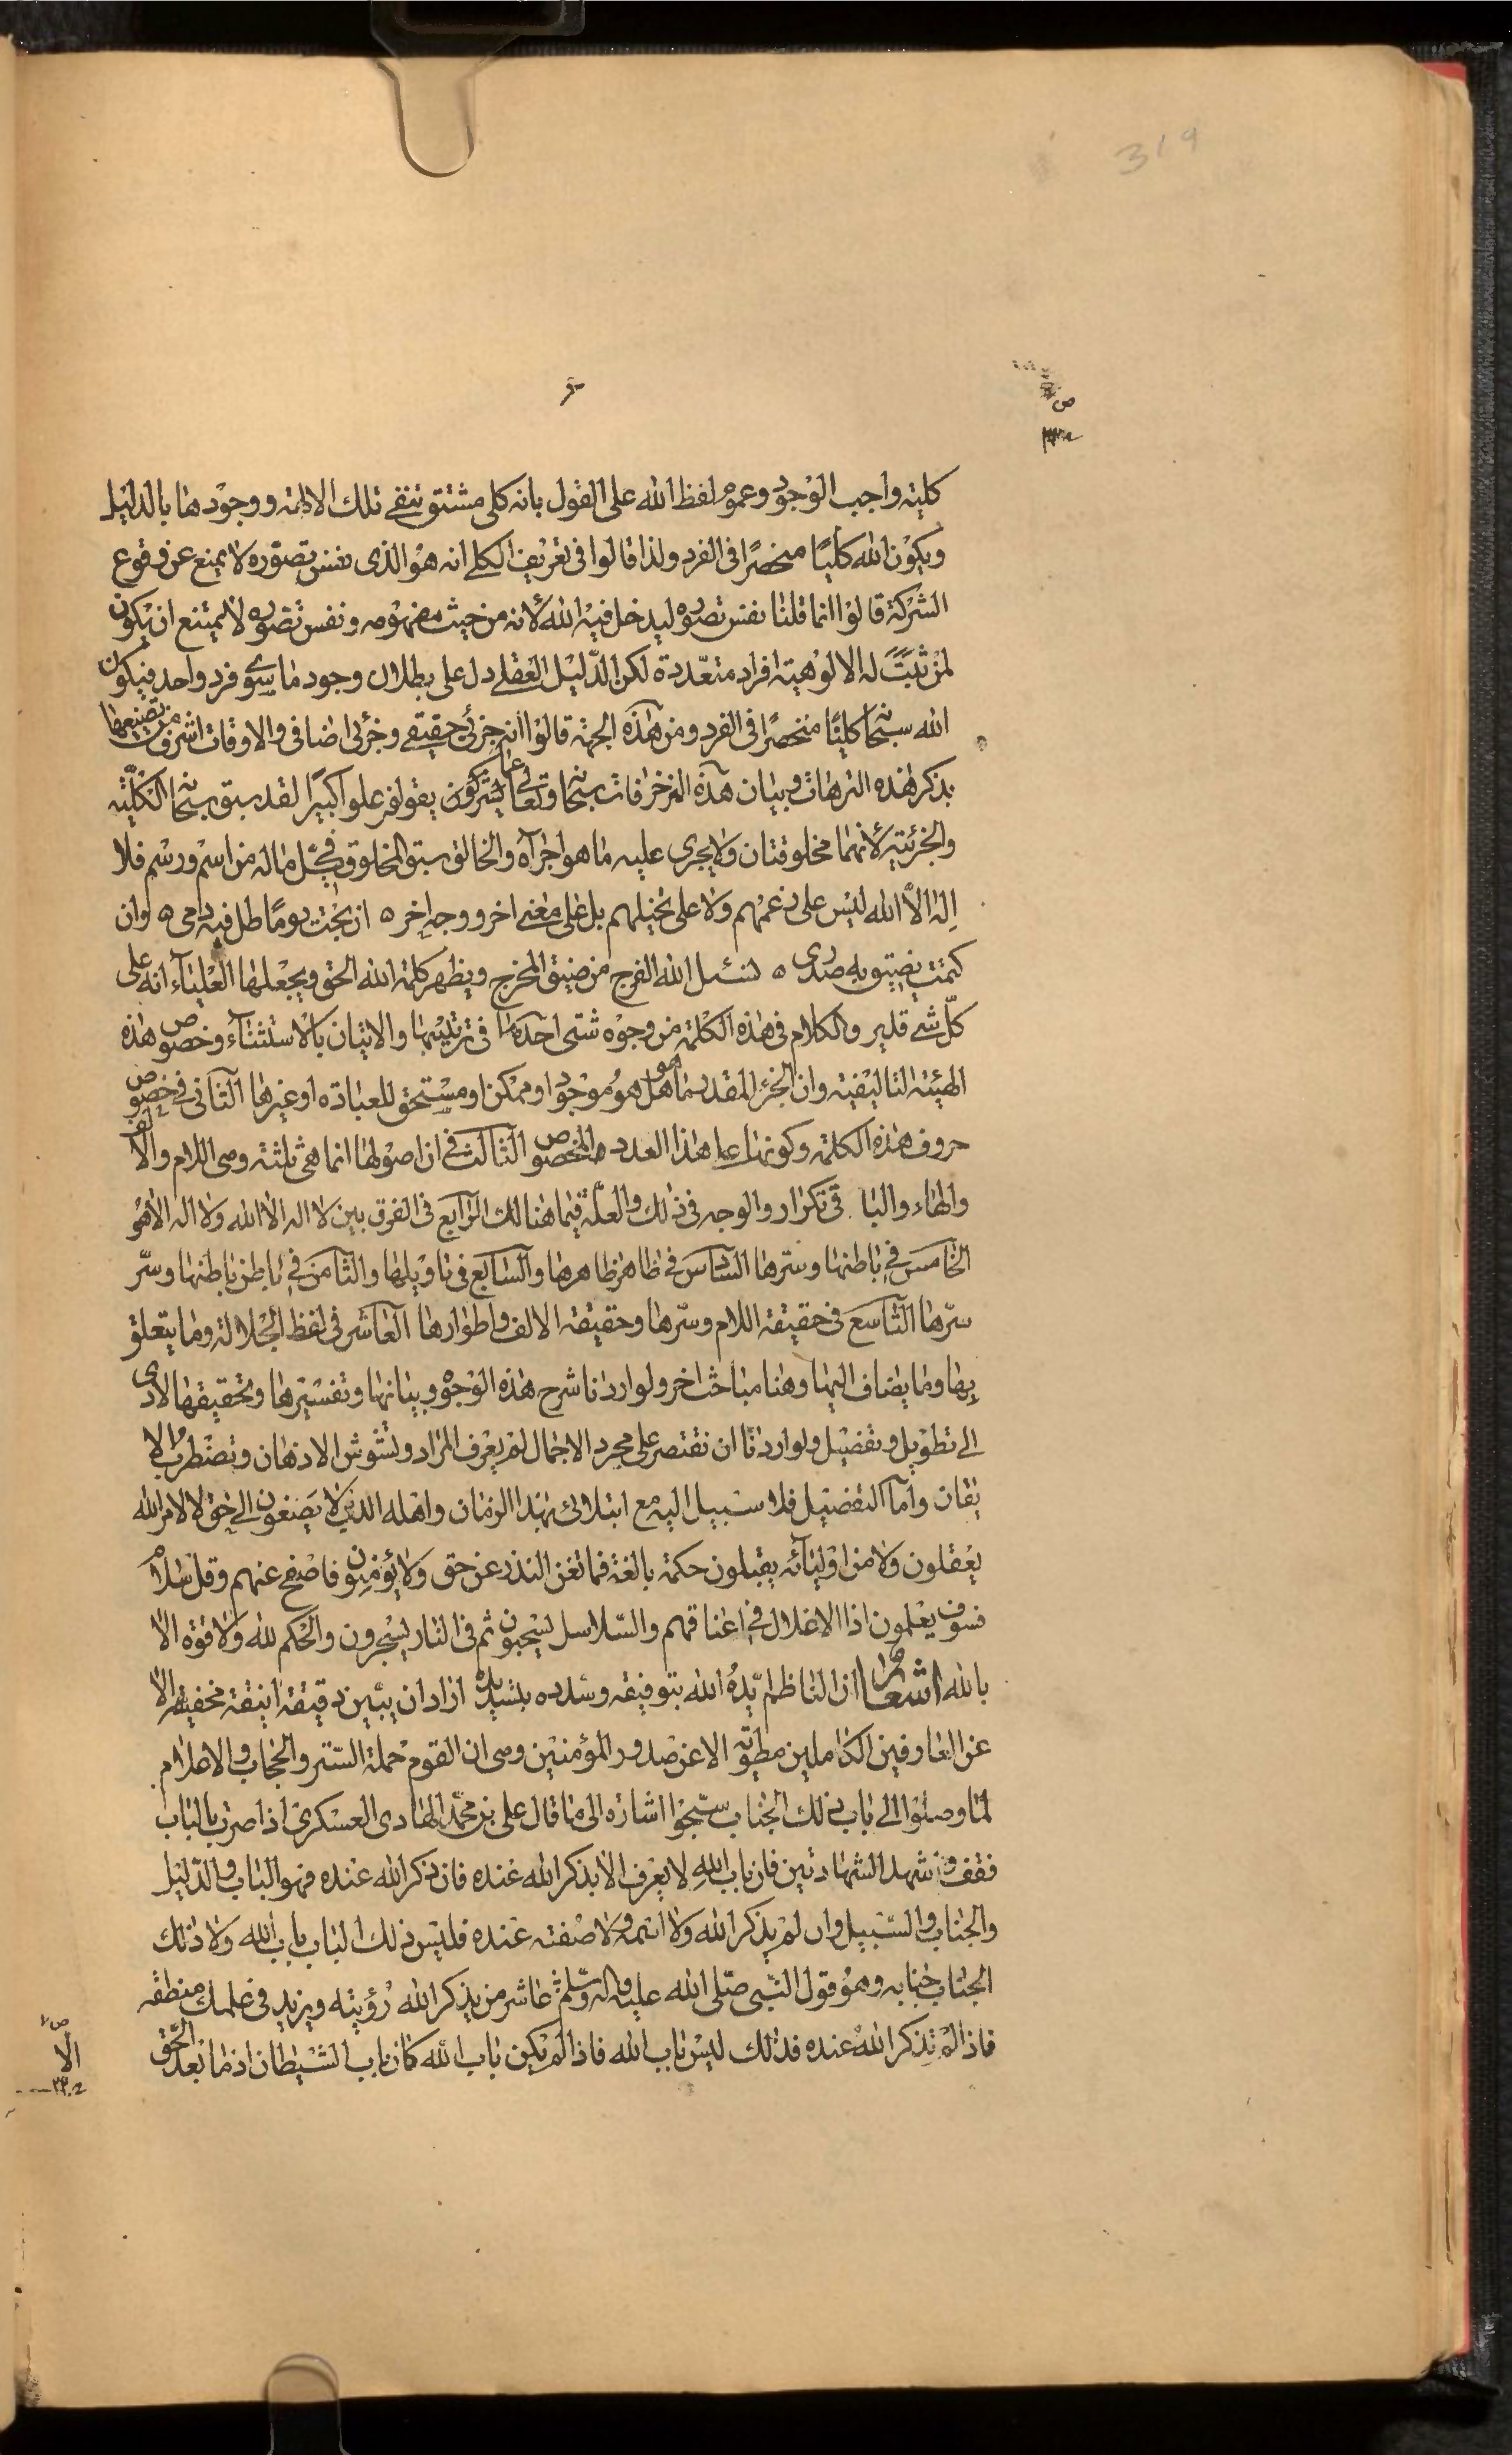 319
كلية واجب الوجود وعموم لفظ الله على القول بانه كلى مشتق تنفى تلك الادلة ووجودها بالدليل
ويكون الله كليًا منحصرًا فى الفرد ولذا قالوا فى تعريف الكلى انه هو الذى نفس تصوّره لا يمنع عن وقوع
الشركة قالوا انما قلنا نفس تصوره ليدخل فيه الله لأنه من حيث مفهومه ونفس تصوره لا يمتنع ان يكون
لمن ثبتت له الالوهية افراد متعددة لكن الدّليل العقلى دل على بطلان وجود ما سوى فرد واحد فيكون
الله سبحانه كليًا منحصرًا فى الفرد ومن هذه الجهة قالوا انه جزئى حقيقى وجزئى اضافى والاوقات اشرف من تضييعها
بذكر هذه الترهات وبيان هذه المزخرفات سبحانه وتعالى عما يشركون يقولون علوا كبيرًا لقد سبق سبحانه الكلّية
والجزئية لأنهما مخلوقتان ولا يجرى عليه ما هو اجراه والخالق سبق المخلوق فى كلّ ماله من اسم ورسم فلا
اله الاّ الله ليس على زعمهم ولا على تخيلهم بل على معنى اخر ووجه اخر ه ان بحت يومًا طل فيه دمى ه وان
كتمت يضيق به صدرى ه نسئل الله الفرج من ضيق المخرج ويظهر كلمة الله الحق ويجعلها العلياء انه على
كلّ شئ قدير والكلام فى هذه الكلمة من وجوه شتى احدها فى ترتيبها والاتيان بالاستثناء وخصوص هذه
الهيئة التاليفية وان الخبر المقدر ما هو هل هو موجود او ممكن او مستحق للعبادة او غيرها الثانى فى خصوص
حروف هذه الكلمة وكونها على هذا العدد المخصوص الثالث فى ان اصولها انما هى ثلثة وهى اللام والالف
والهاء والباقى تكرار والوجه فى ذلك والعلّة فيما هنالك الرّابع فى الفرق بين لا اله الا الله ولا اله الا هو
الخامس فى باطنها وسرها السادس فى ظاهر ظاهرها والسابع فى تاويلها والثامن فى باطن باطنها وسرّ
سرّها التاسع فى حقيقة اللام وسرّها وحقيقة الالف واطوارها العاشر فى لفظ الجلالة وما يتعلق
بها وما يضاف اليها وهنا مباحث اخر ولو اردنا شرح هذه الوجوه وبيانها وتفسيرها وتحقيقها لادى
الى تطويل وتفضيل ولو اردنا ان نقتصر على مجرد الاجمال لم يعرف المراد وتشوش الاذهان وتضطرب الا
يقان واما التفضيل فلا سبيل اليه مع ابتلائى بهذا الزمان واهله الذين لا يصغون الى حق لا لامر الله
يعقلون ولا من اوليائه يقبلون حكمة بالغة فما تغن النذر عن حق ولا يؤمنون فاصفح عنهم وقل سلام
فسوف يعلمون اذا الاغلال فى اعناقهم والسّلاسل يسحبون ثم فى النار يسجرون والحكم لله ولا قوة الا
بالله اشعار ان الناظم ايّده الله بتوفيقه وسدده بتسديده اراد ان يبين دقيقة انيقة مخفية الا
عن العارفين الكاملين مطوية الا عن صدور المؤمنين وهى ان القوم حملة السّتر والحجاب والاعلام
لما وصلوا الى باب ذلك الجناب سبّحوا اشارة الى ما قال على بن محمّد الهادى العسكرى اذا صرت بالباب
فقف واشهد الشهادتين فان باب الله لا يعرف الا بذكر الله عنده فان ذكر الله عنده فهو الباب والدّليل
والجناب والسّبيل وان لم يذكر الله ولا اسمه ولا صفته عنده فليس ذلك الباب باب الله ولا ذلك
الجناب جنابه وهو قول النّبى صلّى الله عليه وآله وسلّم عاشر من يذكر الله رؤيته ويزيد فى علمك منطقه
فاذا لم تذكر الله عنده فذلك ليس باب الله فاذا لم يكن باب الله كان باب الشيطان اذ ما بعد الحّق
الا